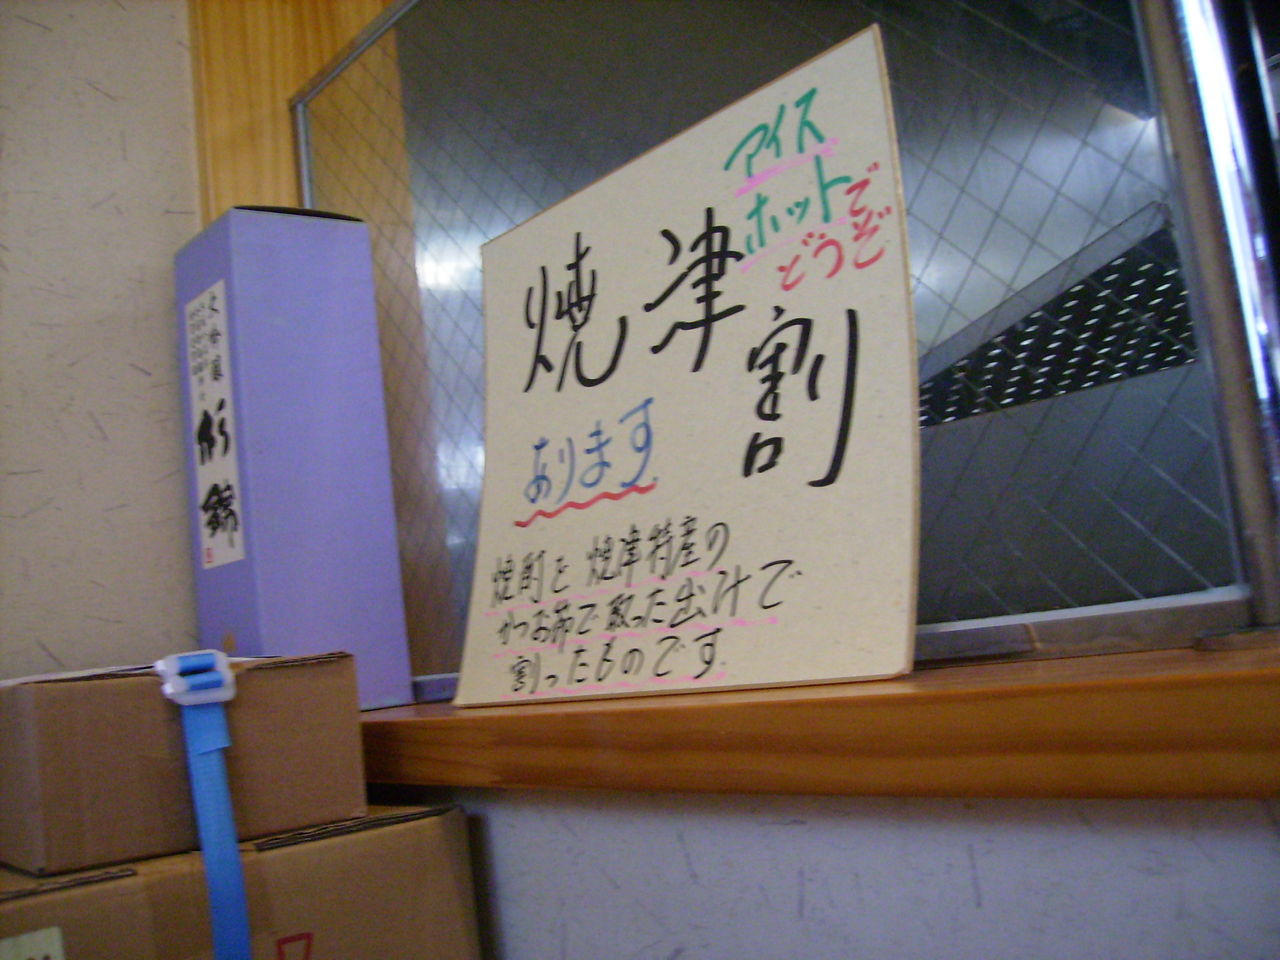 アイス
ホットで
どうぞ
焼津割
あります
焼酎を焼津特産の
かつお節で取った出汁で
割ったものです
杉錦